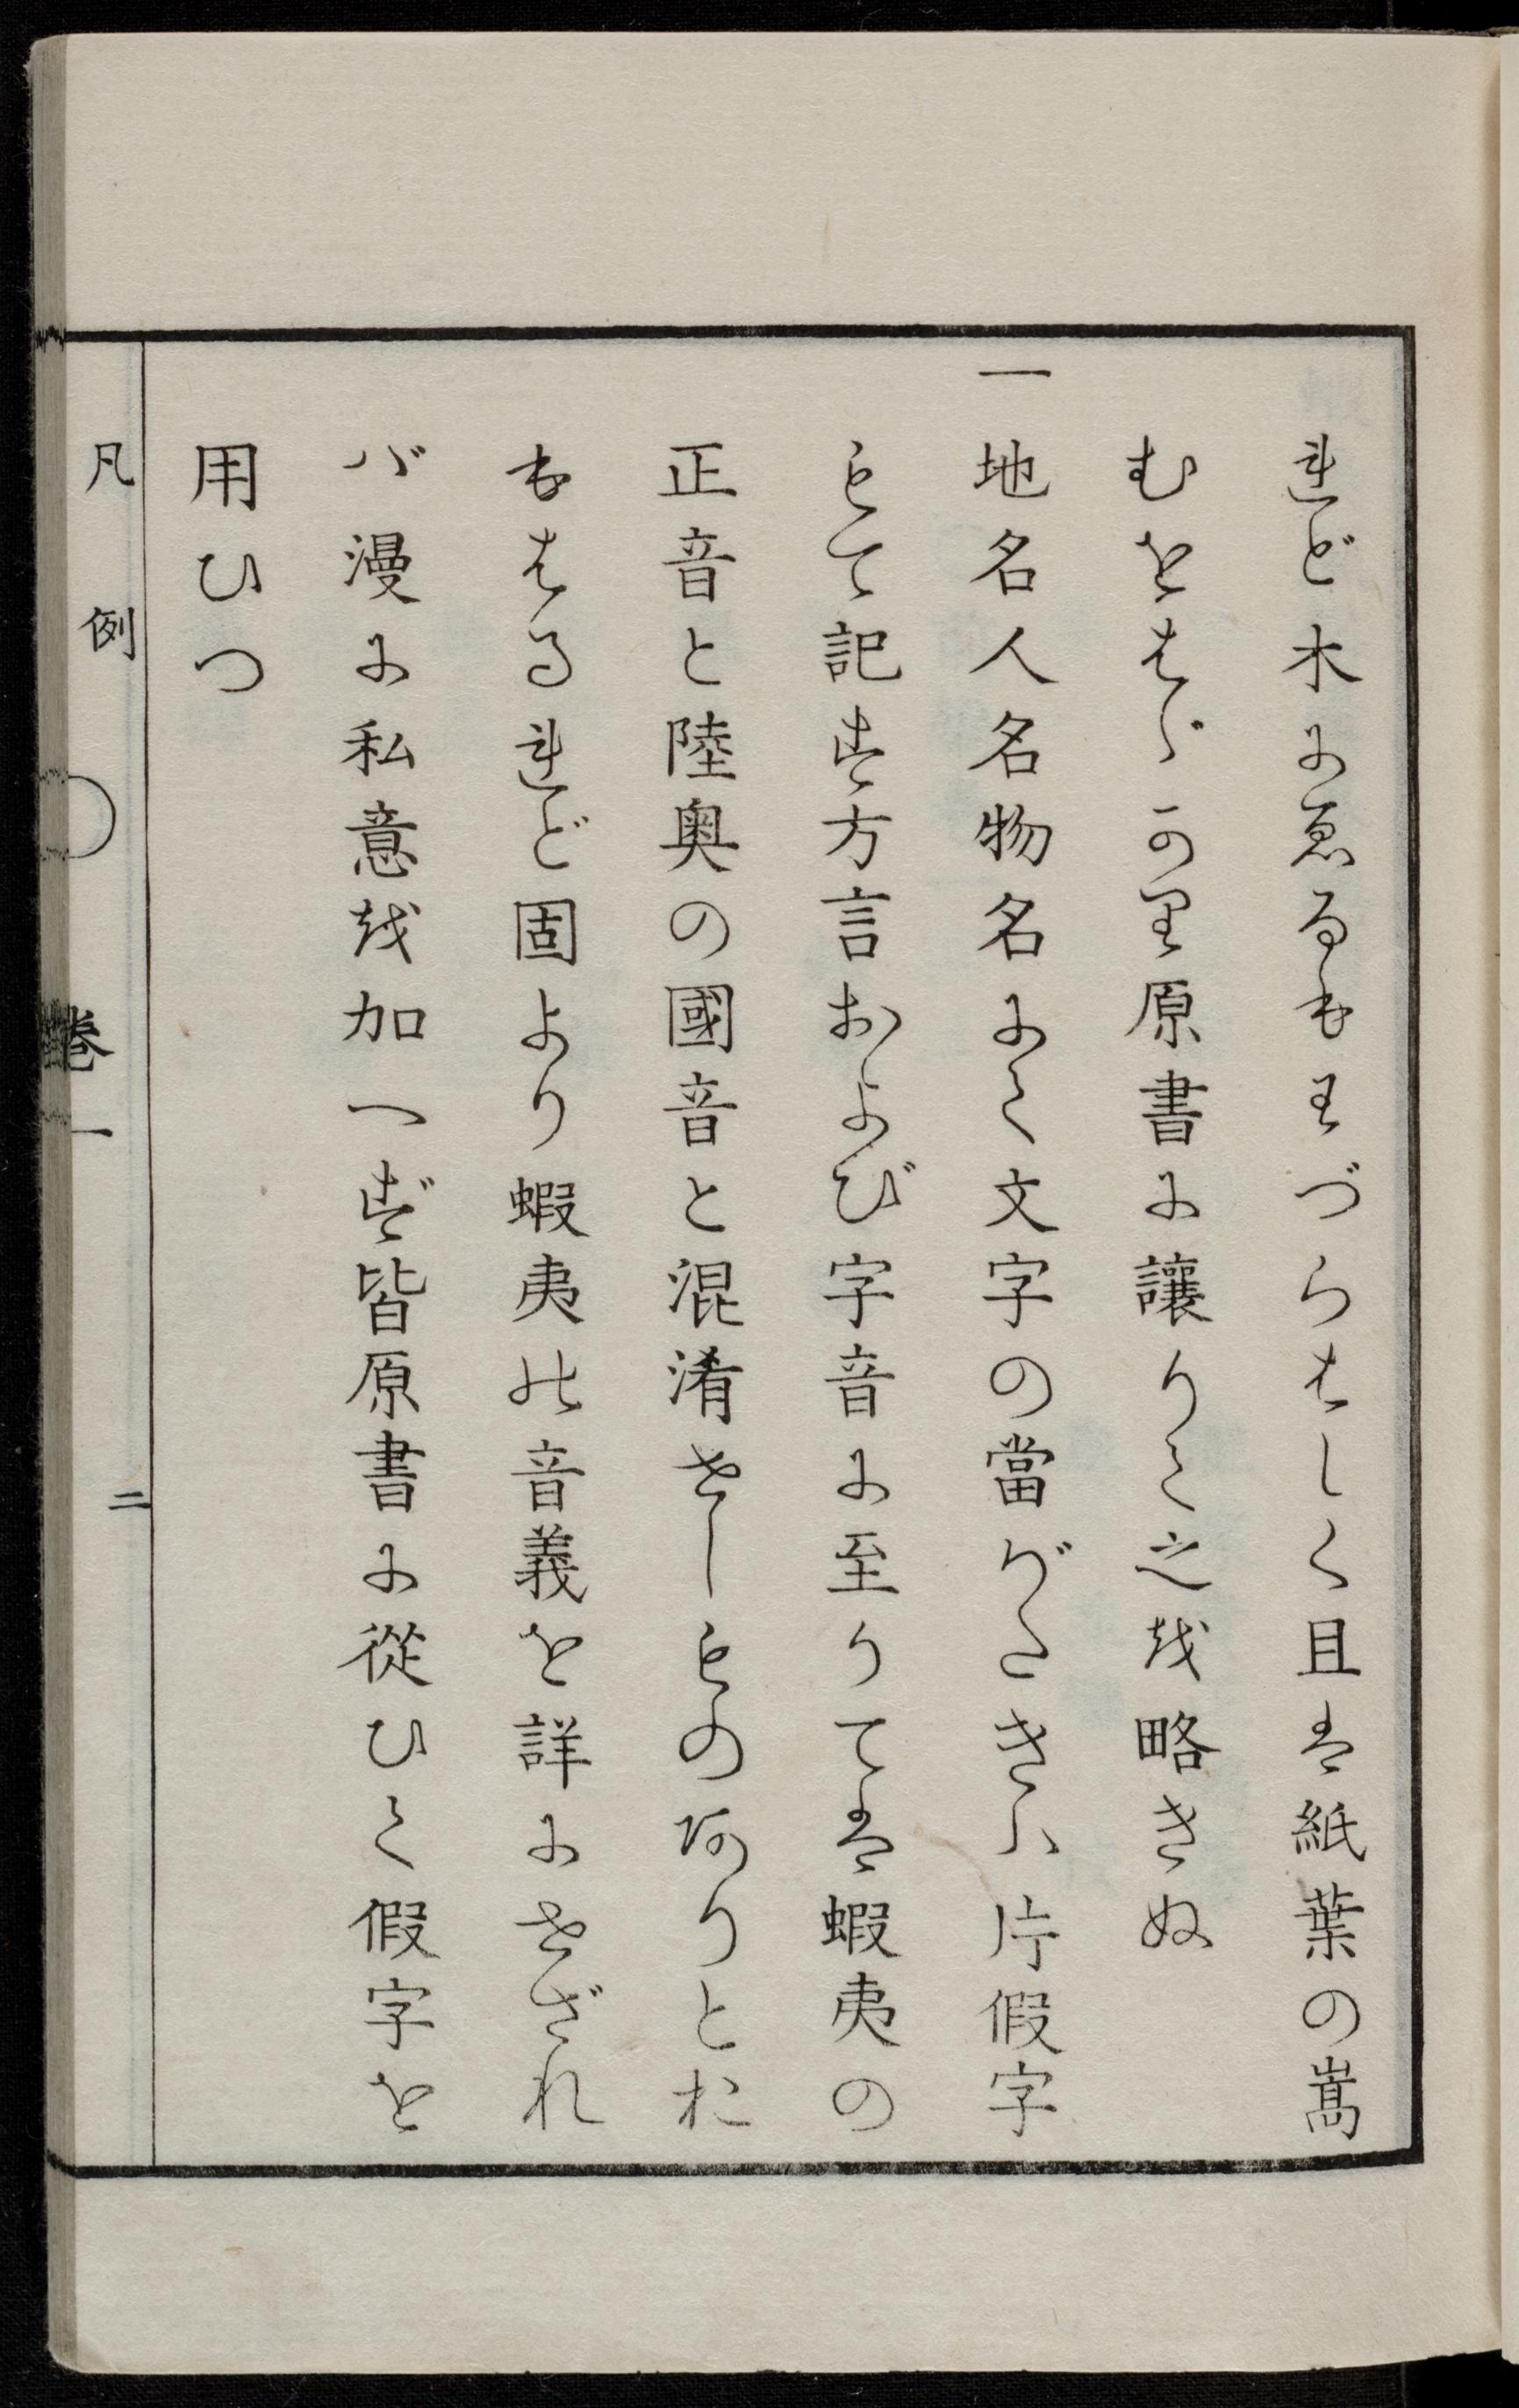 れど木にゑるもわづらはしく且は紙葉の嵩
むをはゞかり原書に讓りて之を略きぬ
一地名人名物名にて文字の當がたきハ片假字
もて記す方言および字音に至りては蝦夷の
正音と陸奥の國音と混淆せしものありとお
もはるれど固より蝦夷の音義を詳にせざれ
バ漫に私意を加へず皆原書に從ひて假字を
用ひつ
凡例 卷一 二